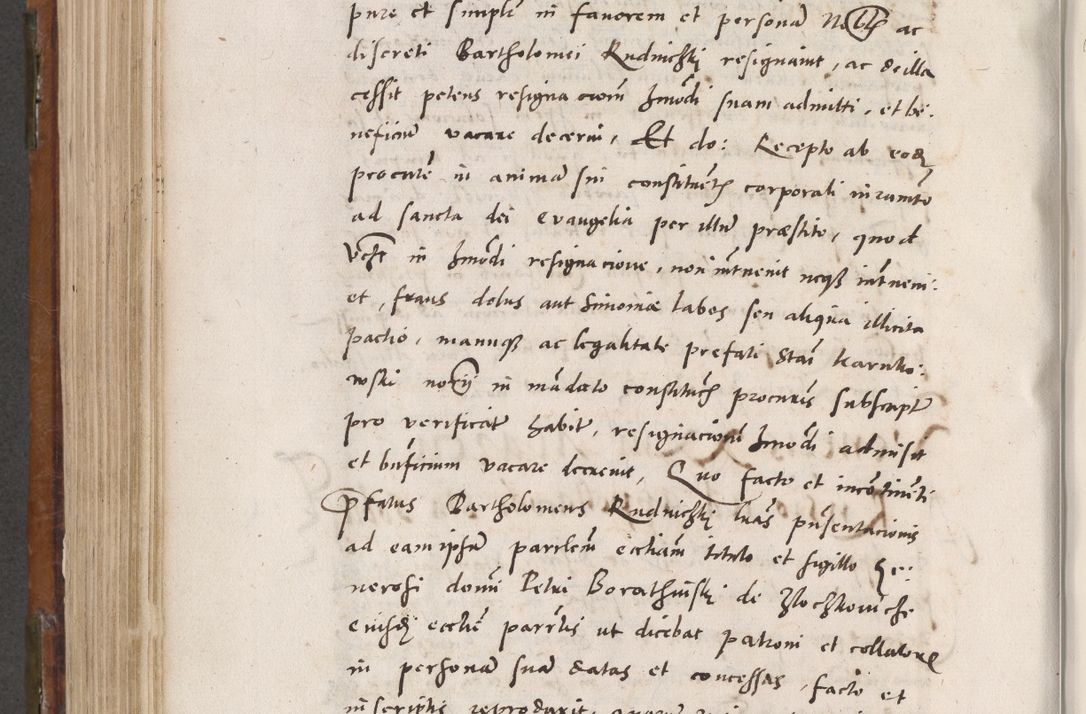 pure et simplr in fauorem et personā Nobłis ac
discreti Bartholomei Rudnichkj resignauit, ac de illa
cessit petens resignacionē hmōdi suam admitti, et be:
neficiū vacare decerni, Et do: Recepto ab eodē
procurē in animā sui constituētis corporali iuramēto
ad sancta dei evangelia per illū præstito, quod
in hmōdi resignacione, non intruenit neqȝ intrueni:
et, fraus dolus aut Simoniæ labes seu aliqua illicita
pactio, manuqȝ ac legalitate prefati Stañ Karnko:
wski notȷ̄ in mādato constitucīs procurīs subscriptū
pro verificātr habitr, resignacionē hmōdi admisit
et bnficium vacare decreuit, Quo facto et incōtinēti
Pfatus Bartholomeus Rudnichkj lrās pnsentacionis
ad eam ipsā parrlem ecctiam titulo et sigillo Ge:
nerosi domi Petri Borathinskj de Zlochkoviche
eiusdē ecctiē parrlis ut dicebat patroni et collatore
in personā suā datas et concessas, facto et
in scriptis reproduxit,